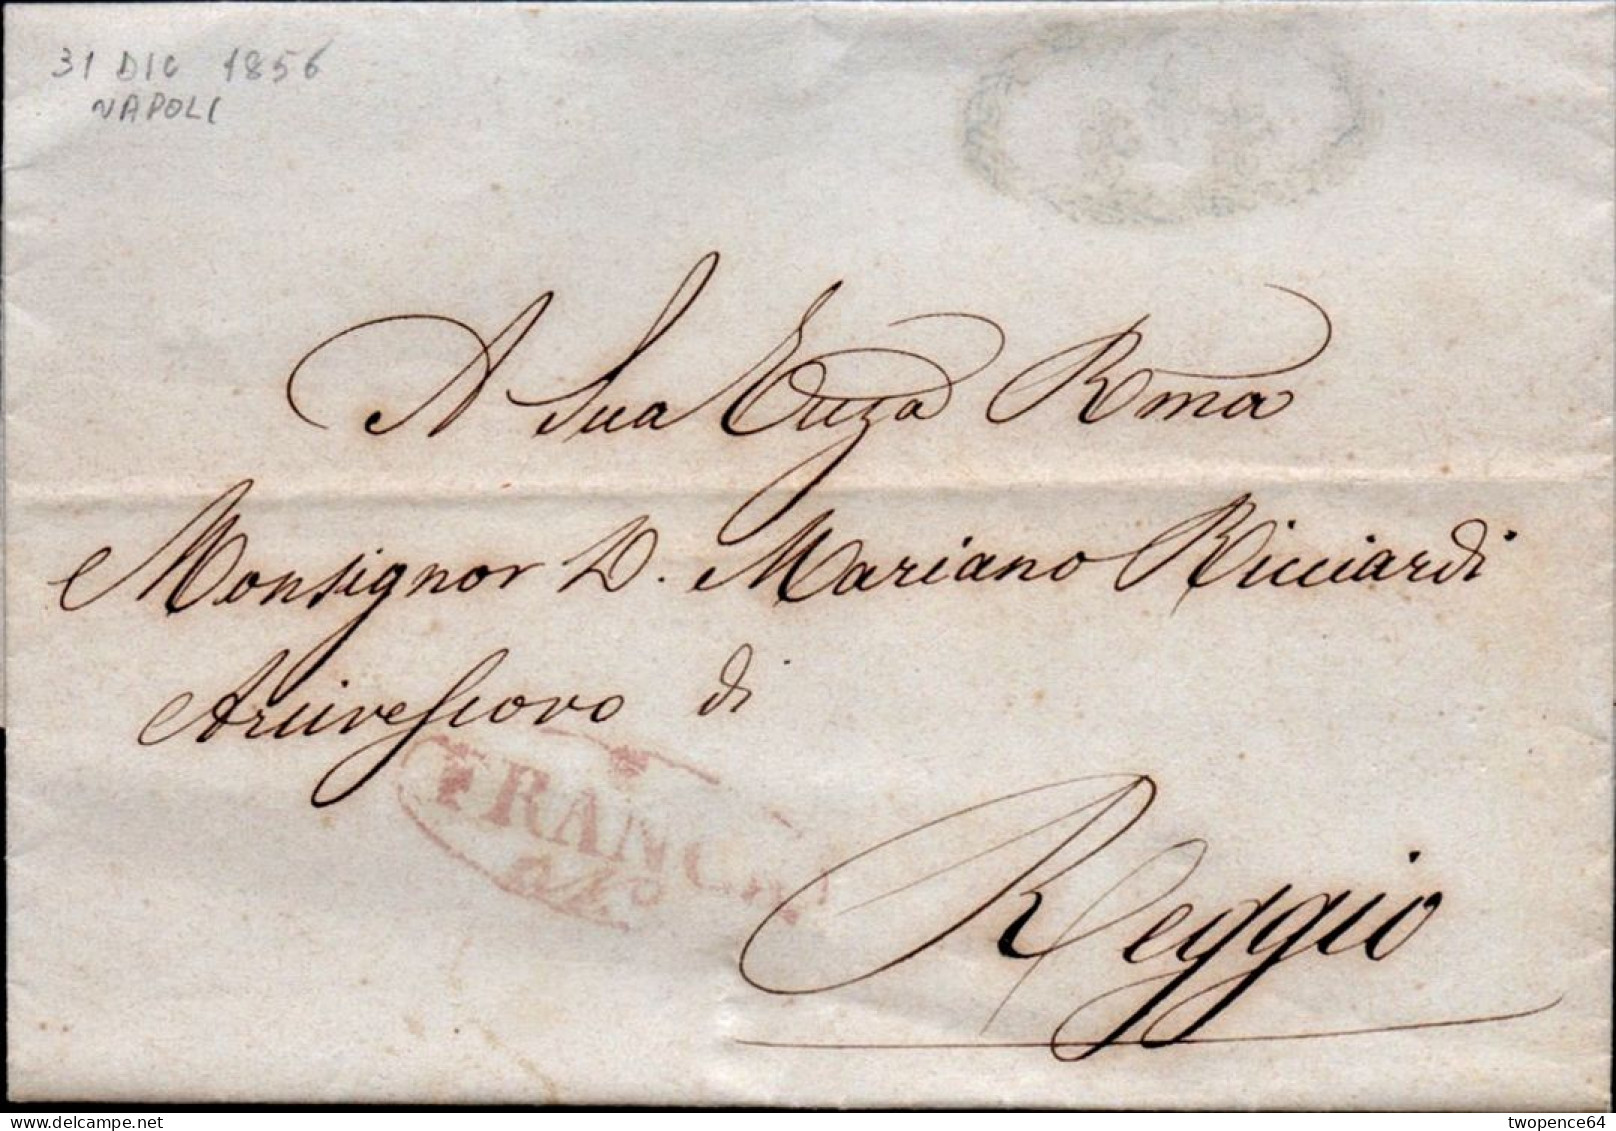 31 DIC 1856
NAPOLI
A Sua Eccza Rma
Monsignor D. Mariano Ricciardi
Arcivescovo di
Reggio
twopence64